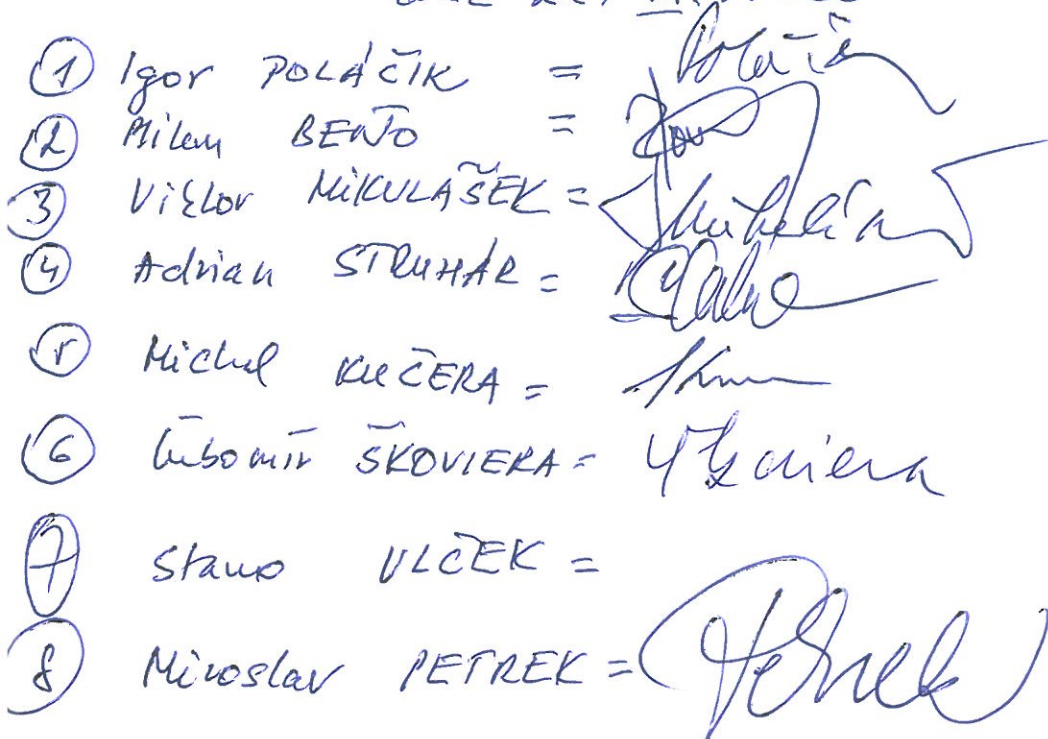 1 Igor POLÁČIK =
2 Milan BEŇO =
3 Viktor MIKULÁŠEK =
4 Adrian STRUHÁR =
5 Michal KUČERA =
6 Ľubomír ŠKOVIERA = Škoviera
7 Stano VLČEK =
8 Miroslav PETREK = Petrek